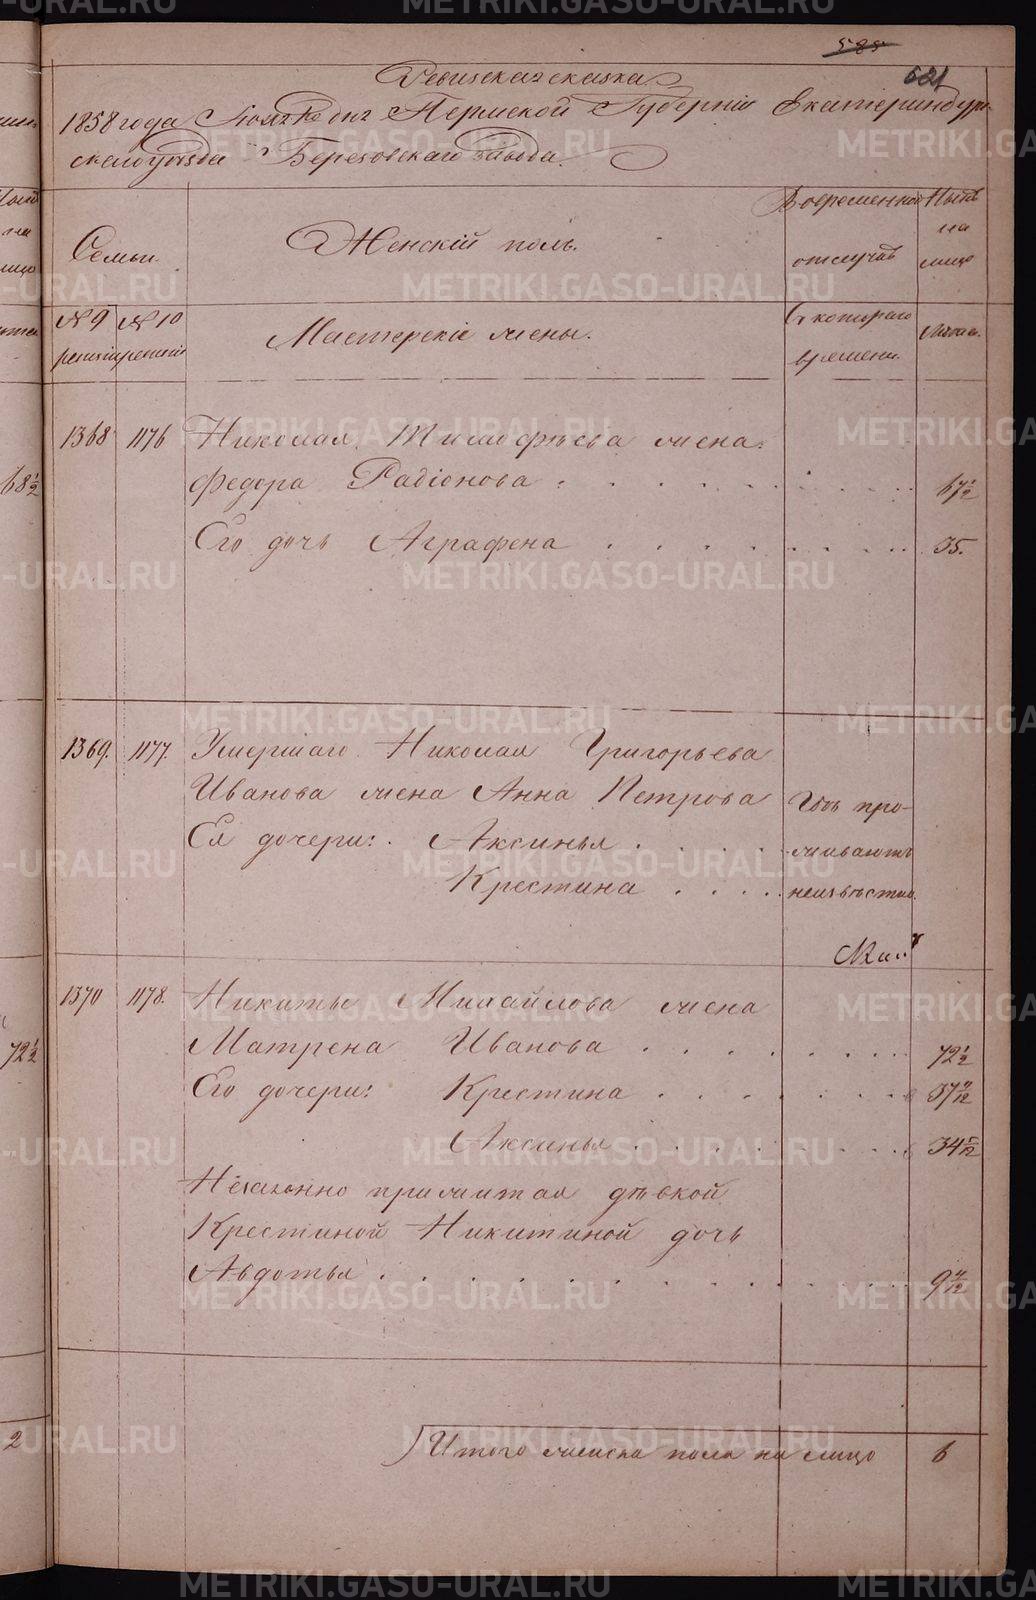 585
621
Ревизская сказка
1858 года Пермской Губерніи Екатеринбург-
скаго уѣзда Березовскаго завода.
Семьи.
Женскій полъ.
Вовременной отлучкѣ
Нынѣ на лицо
№ 9 ревизіи
№ 10 ревизіи
Мастерскіе жены.
Съ котораго времени.
Лѣта.
1368 1176 Николая Тимофѣева жена
Федора Радіонова 67 1/2
Его дочь Аграфена 35.
1369. 1177. Умершаго Николая Григорьева
Иванова жена Анна Петрова Гдѣ про-
Ея дочери: Аксинья живаютъ
Крестина неизвѣстно.
1370 1178. Никиты Михайлова жена
Матрена Иванова 72 1/2
Его дочери: Крестина
Аксинья
Незаконно прижитая дѣвкой
Крестиной Никитиной дочь
Авдотья
Итого женска пола на лицо 6
68 1/2
72 1/2
2
METRIKI.GASO-URAL.RU